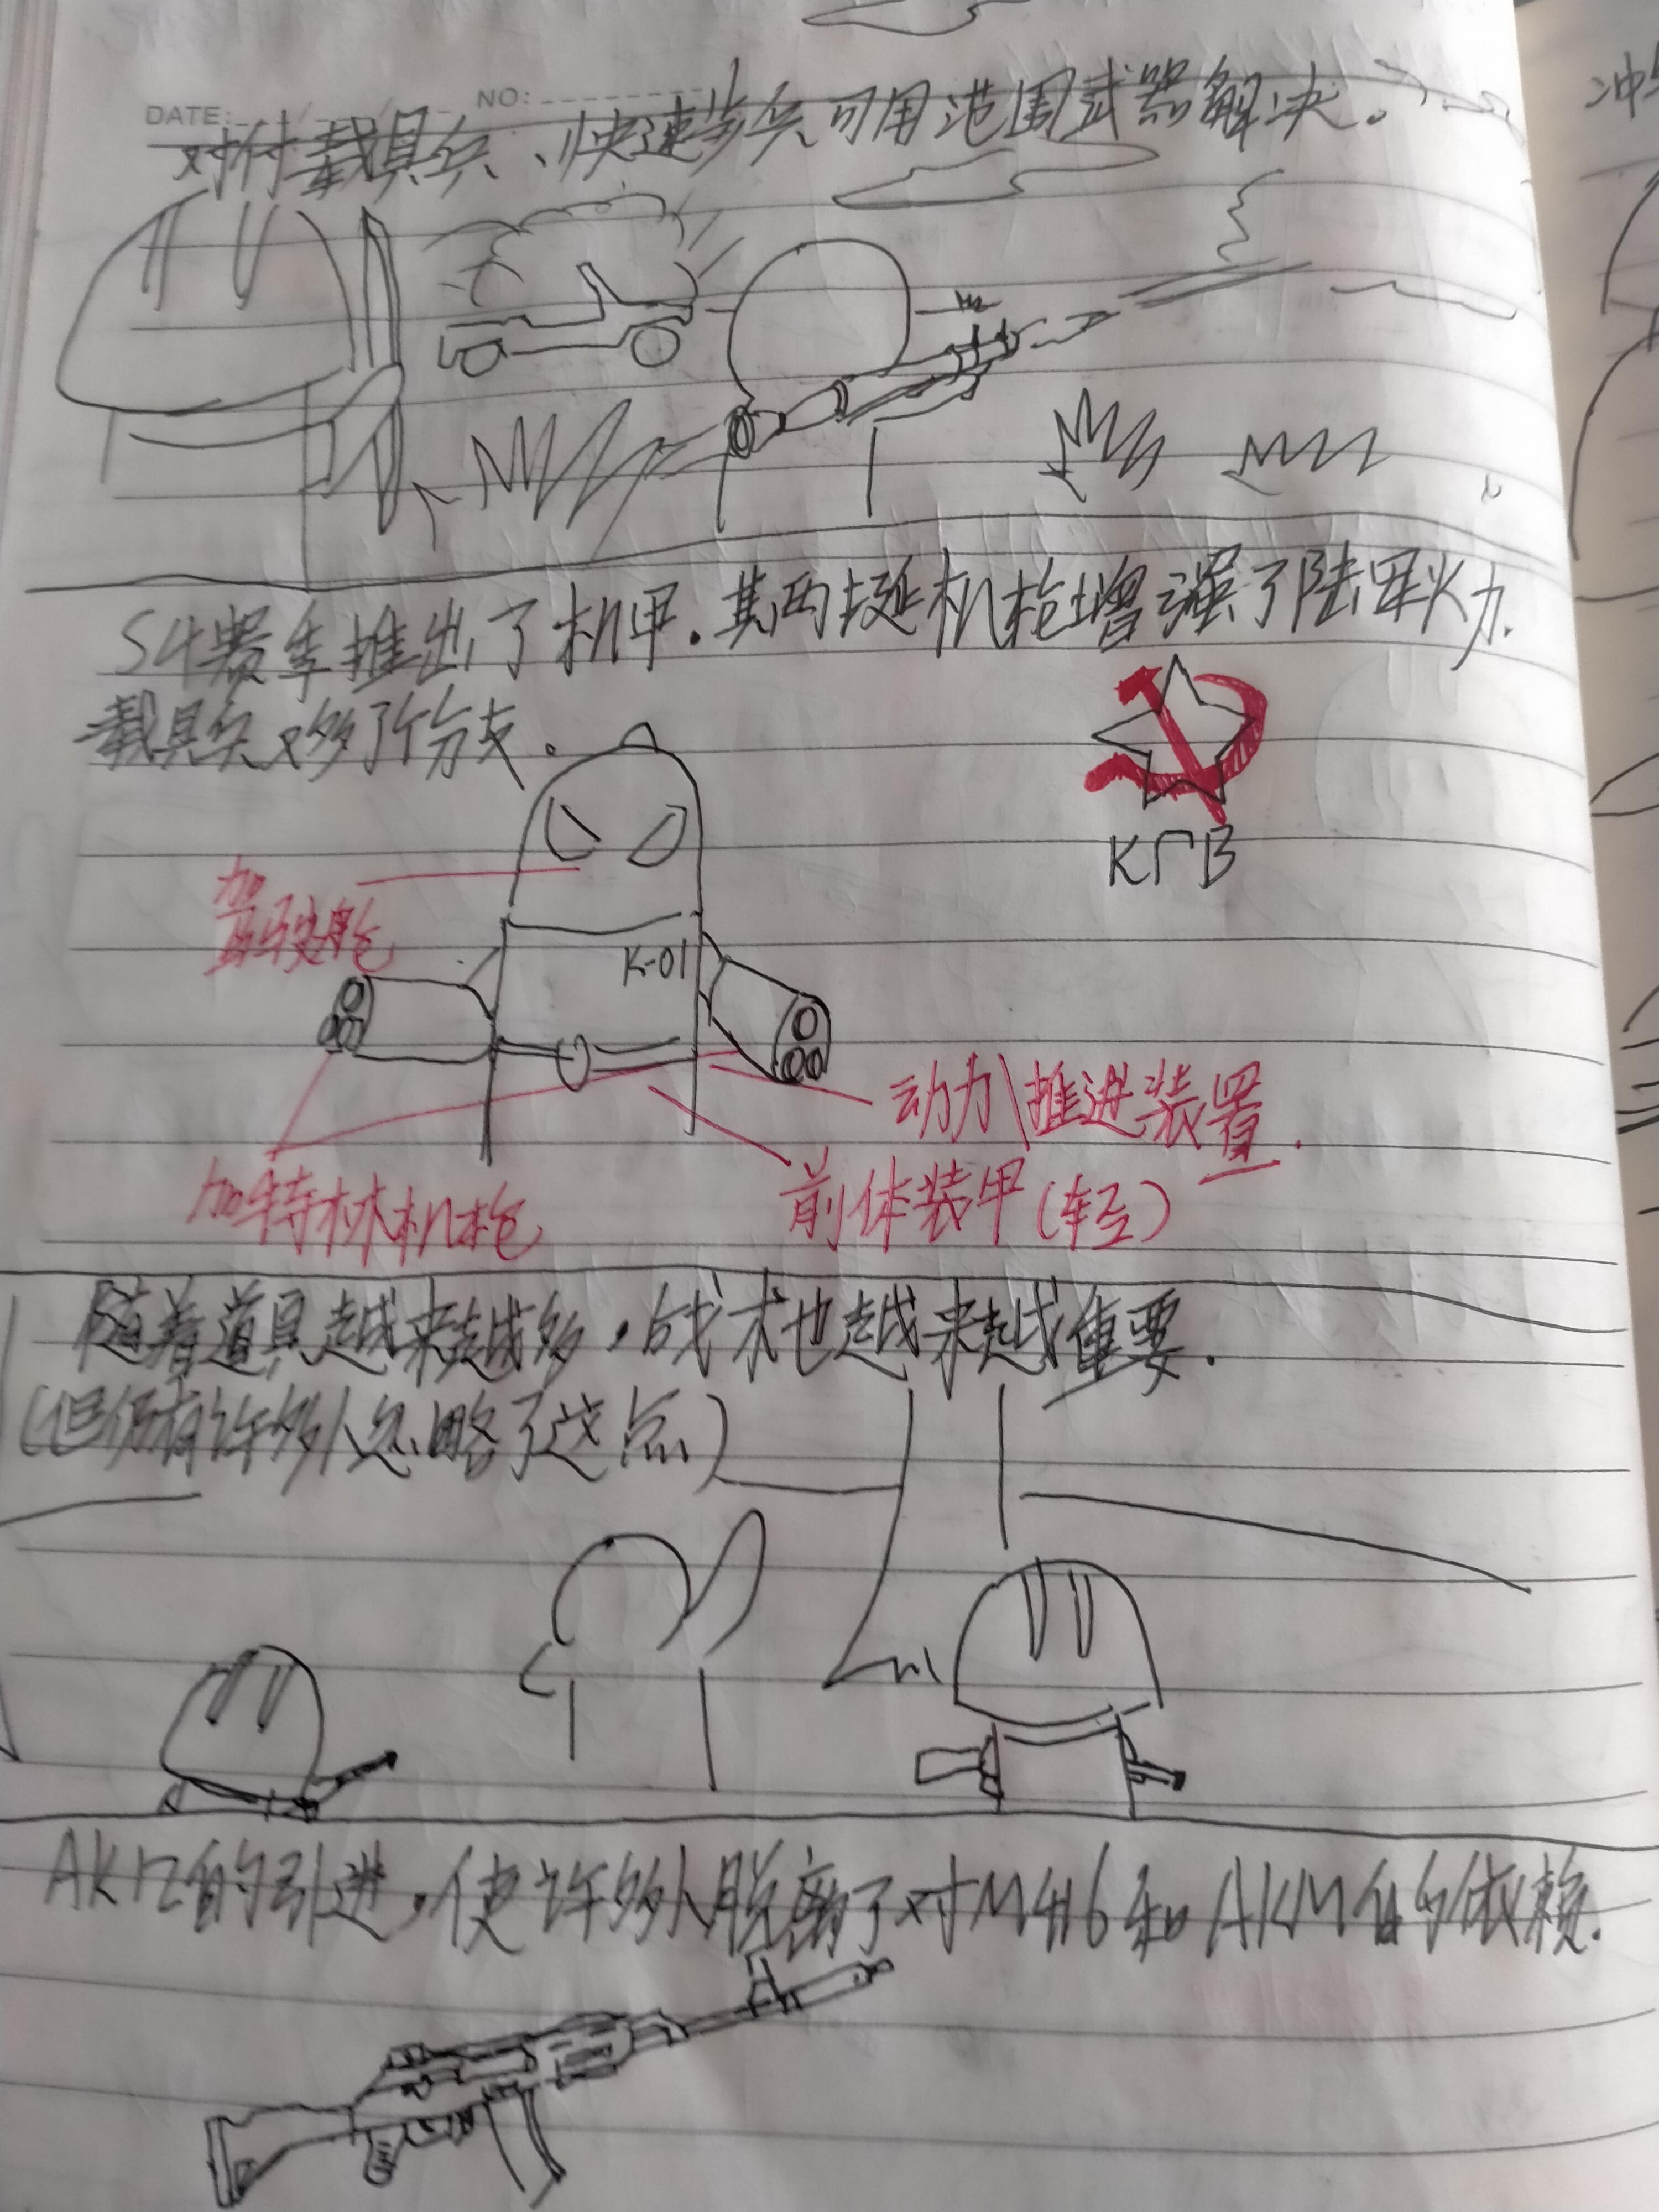 DATE: / / NO:
对付载具兵、快速步兵可用范围武器解决。
冲
S4赛季推出了机甲.其两挺机枪增强了陆军火力.
载具兵又多了个分支.
КГВ
驾驶舱
K-01
动力\推进装置.
加特林机枪
前体装甲(轻)
随着道具越来越多,战术也越来越重要.
(但仍有许多人忽略了这点)
AK12的引进,使许多人脱离了对M416和AKM的依赖.